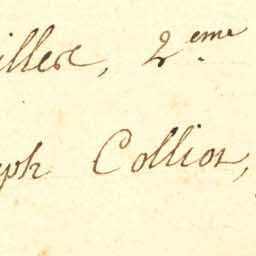 illere, 2.eme
eph Colliot,